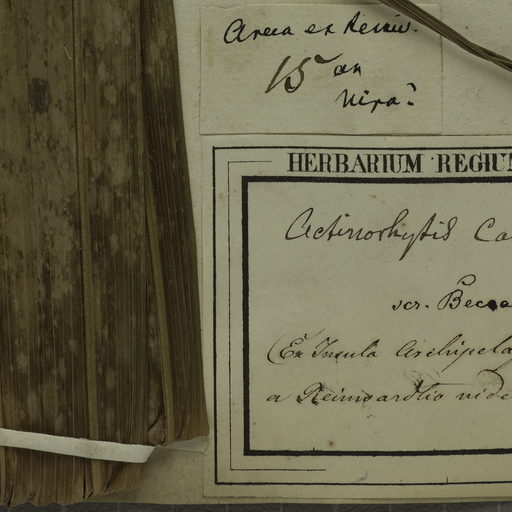 Areca ex Reinw.
15 an
Nipa?
HERBARIUM REGIUM
Actinorhytis Ca
scr. Becca
Ex Insula Archipela
a Reinwardtio vide